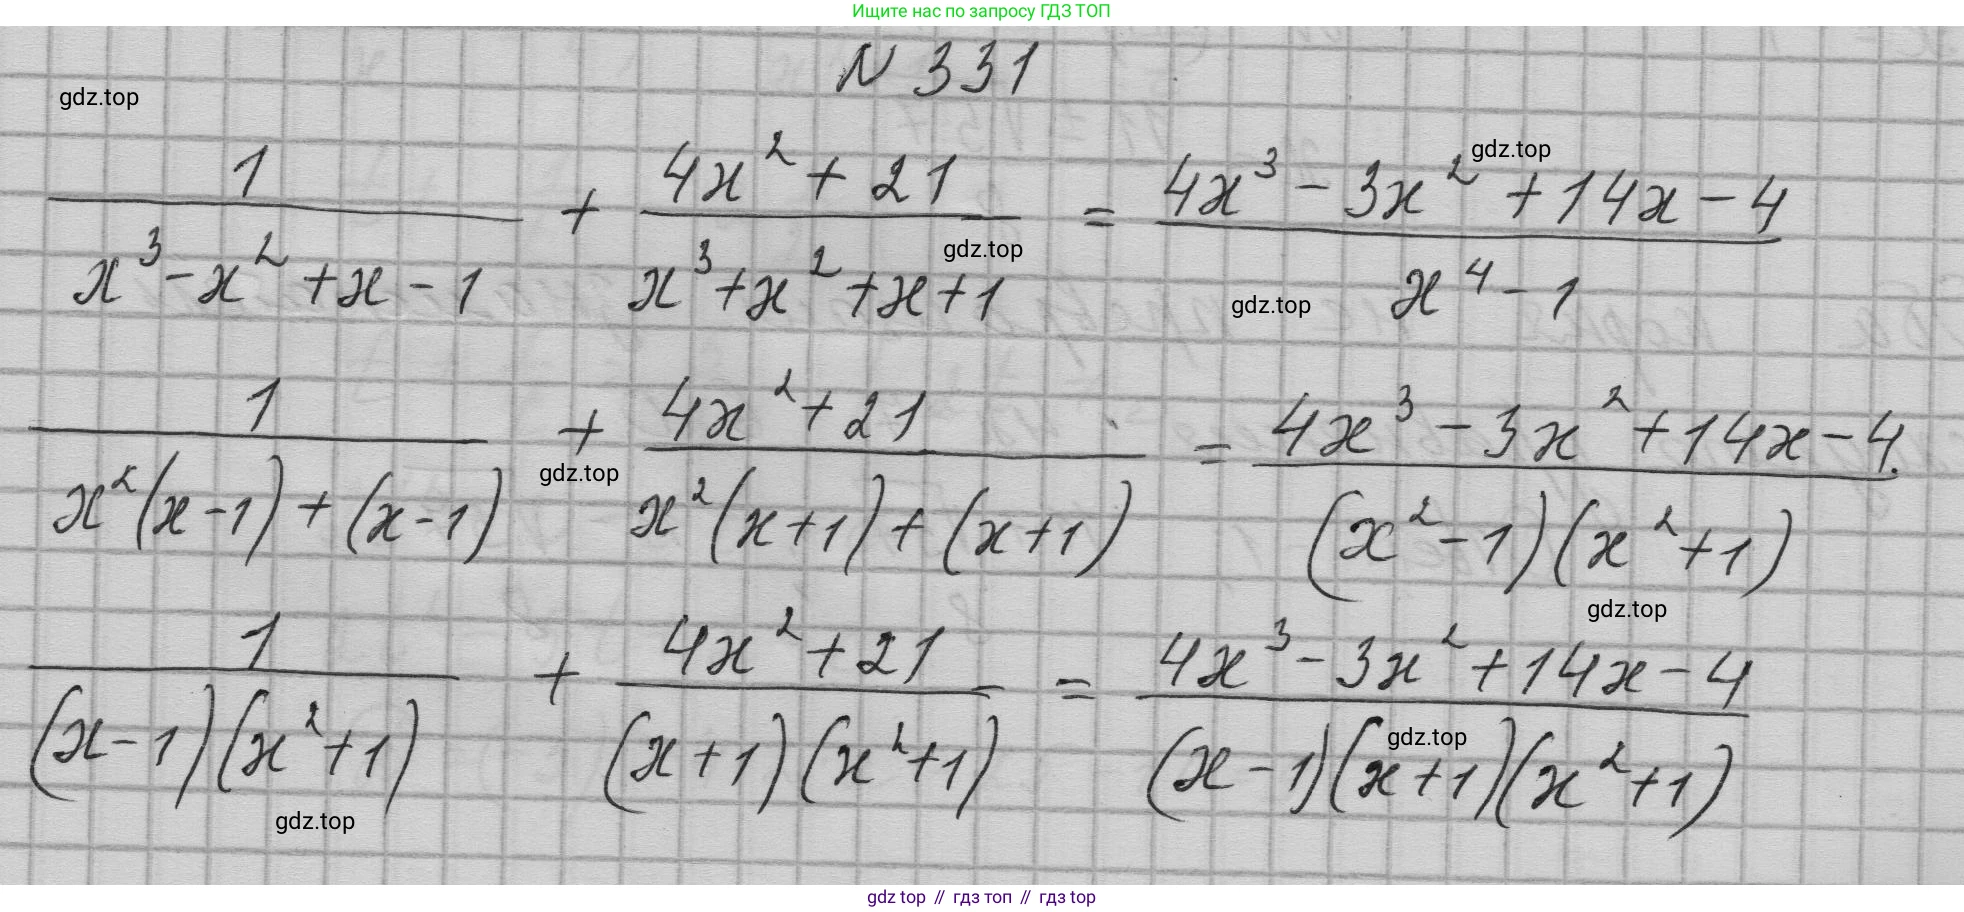 Ищите нас по запросу ГДЗ ТОП
N 331
gdz.top
1/(x³-x²+x-1) + (4x²+21)/(x³+x²+x+1) = (4x³-3x²+14x-4)/(x⁴-1)
gdz.top
gdz.top
gdz.top
1/(x²(x-1)+(x-1)) + (4x²+21)/(x²(x+1)+(x+1)) = (4x³-3x²+14x-4)/((x²-1)(x²+1))
gdz.top
gdz.top
1/((x-1)(x²+1)) + (4x²+21)/((x+1)(x²+1)) = (4x³-3x²+14x-4)/((x-1)(x+1)(x²+1))
gdz.top
gdz.top
gdz top // гдз топ // гдз top